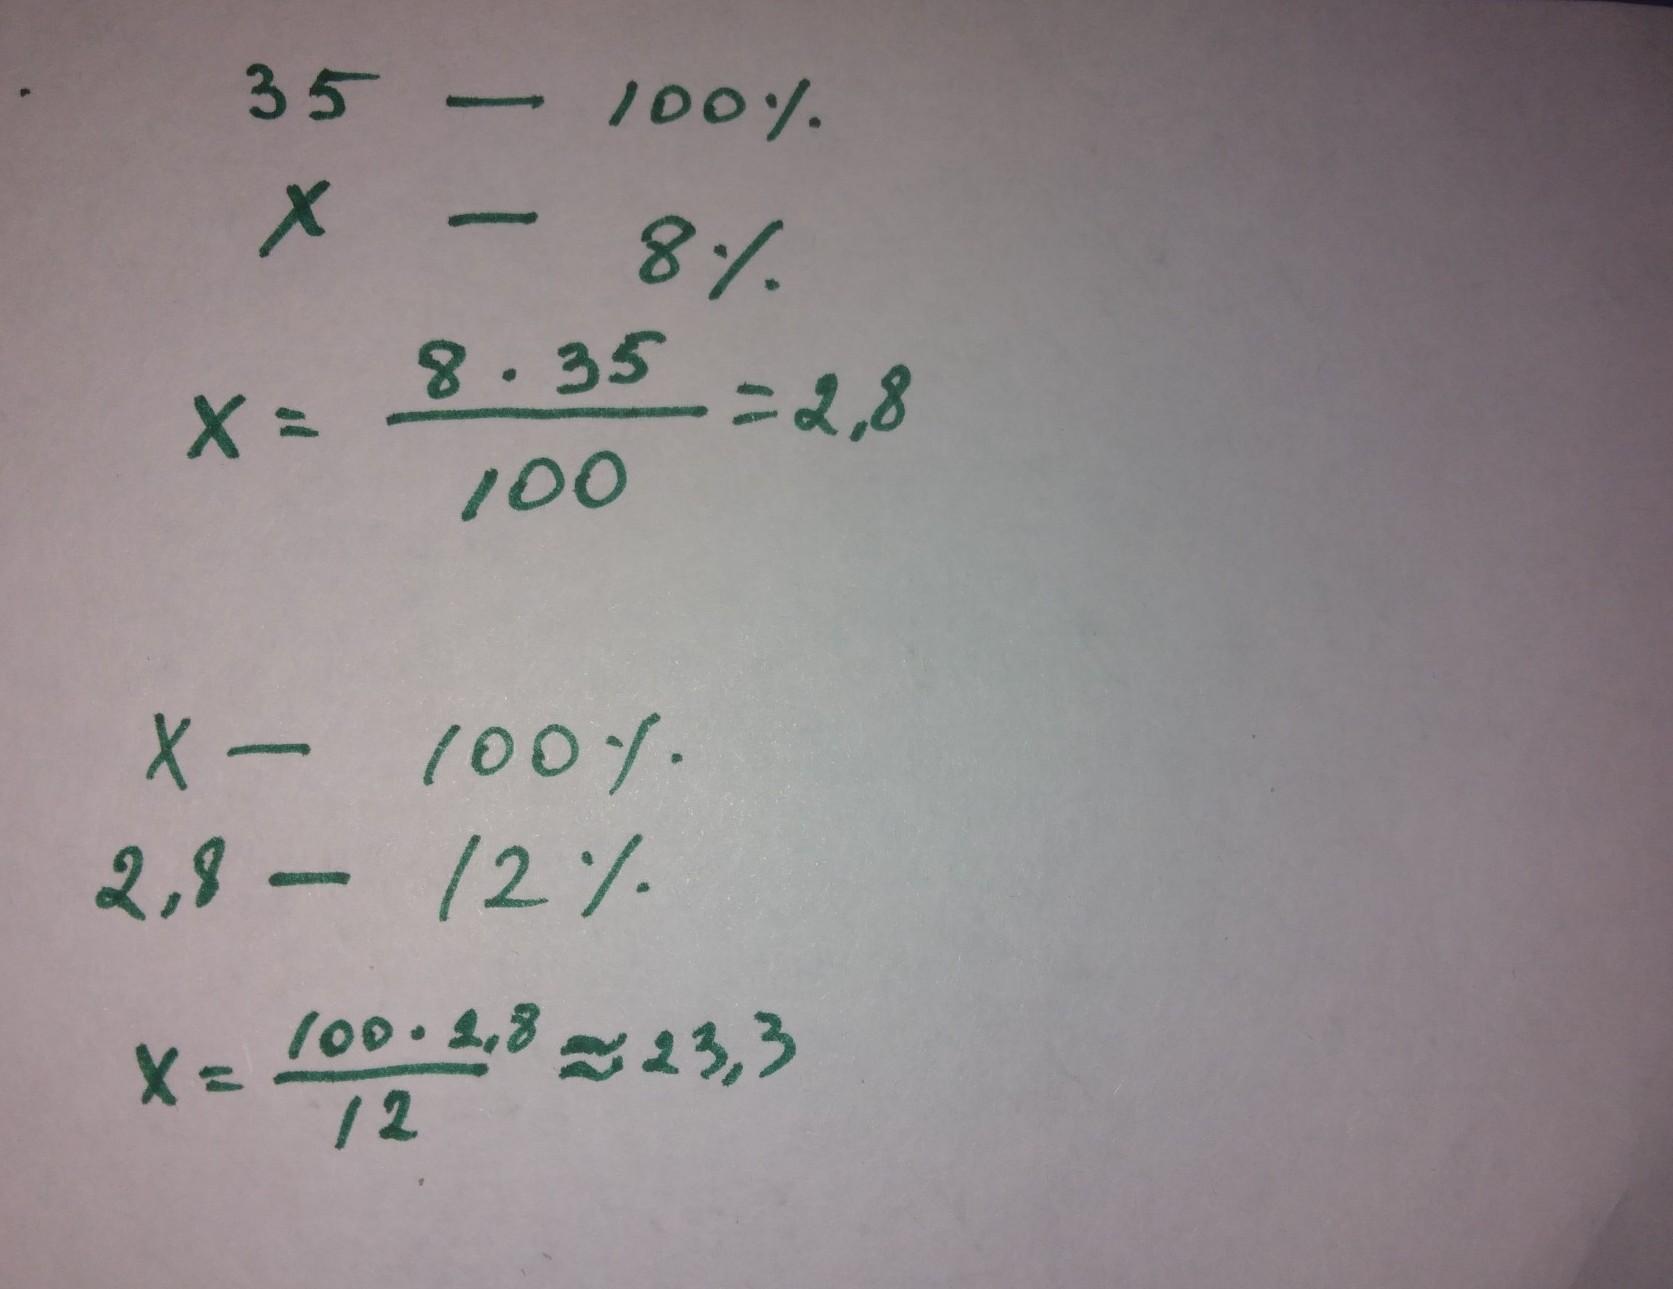 35 — 100%
x — 8%
x = 8 · 35 / 100 = 2,8
x — 100%
2,8 — 12%
x = 100 · 2,8 / 12 ≈ 23,3